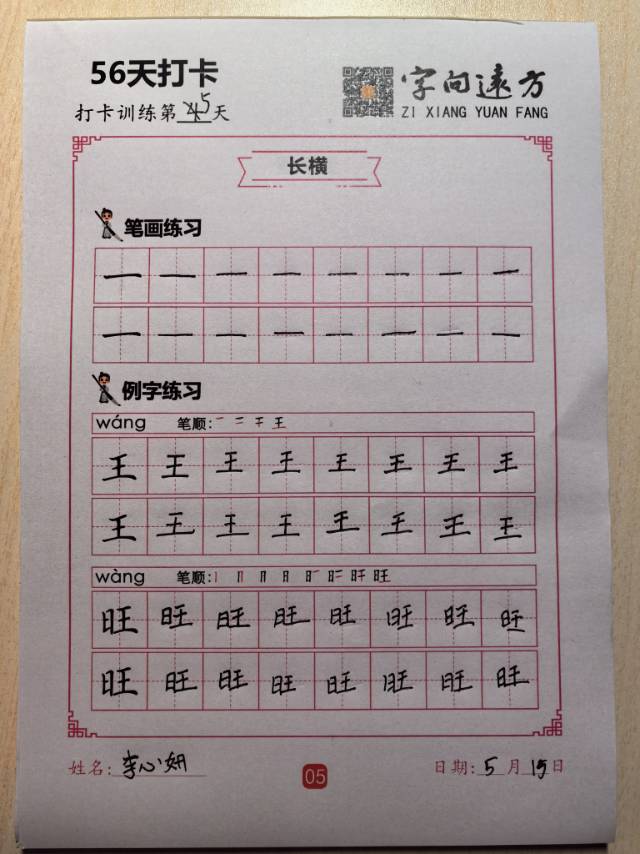 56天打卡
打卡训练第5天
字向远方
ZI XIANG YUAN FANG
长横
笔画练习
一 一 一 一 一 一 一 一
一 一 一 一 一 一 一 一
例字练习
wáng 笔顺: 一 二 干 王
王 王 王 王 王 王 王 王
王 王 王 王 王 王 王 王
wàng 笔顺:
旺 旺 旺 旺 旺 旺 旺 旺
旺 旺 旺 旺 旺 旺 旺 旺
姓名: 李心妍
05
日期: 5月15日